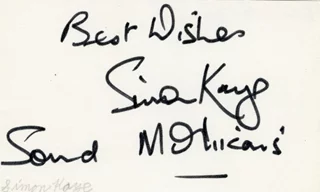 Best Wishes
Simon Kaye
Sound Mohicans'
Simon Kaye